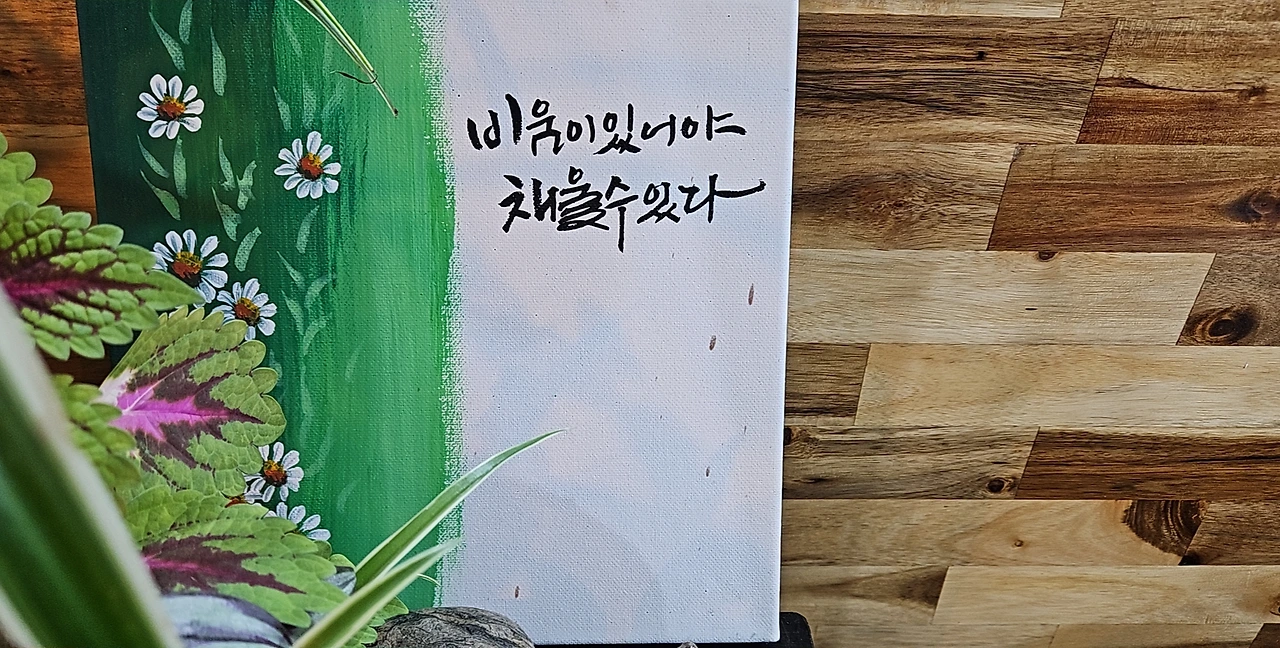 비움이있어야
채울수있다